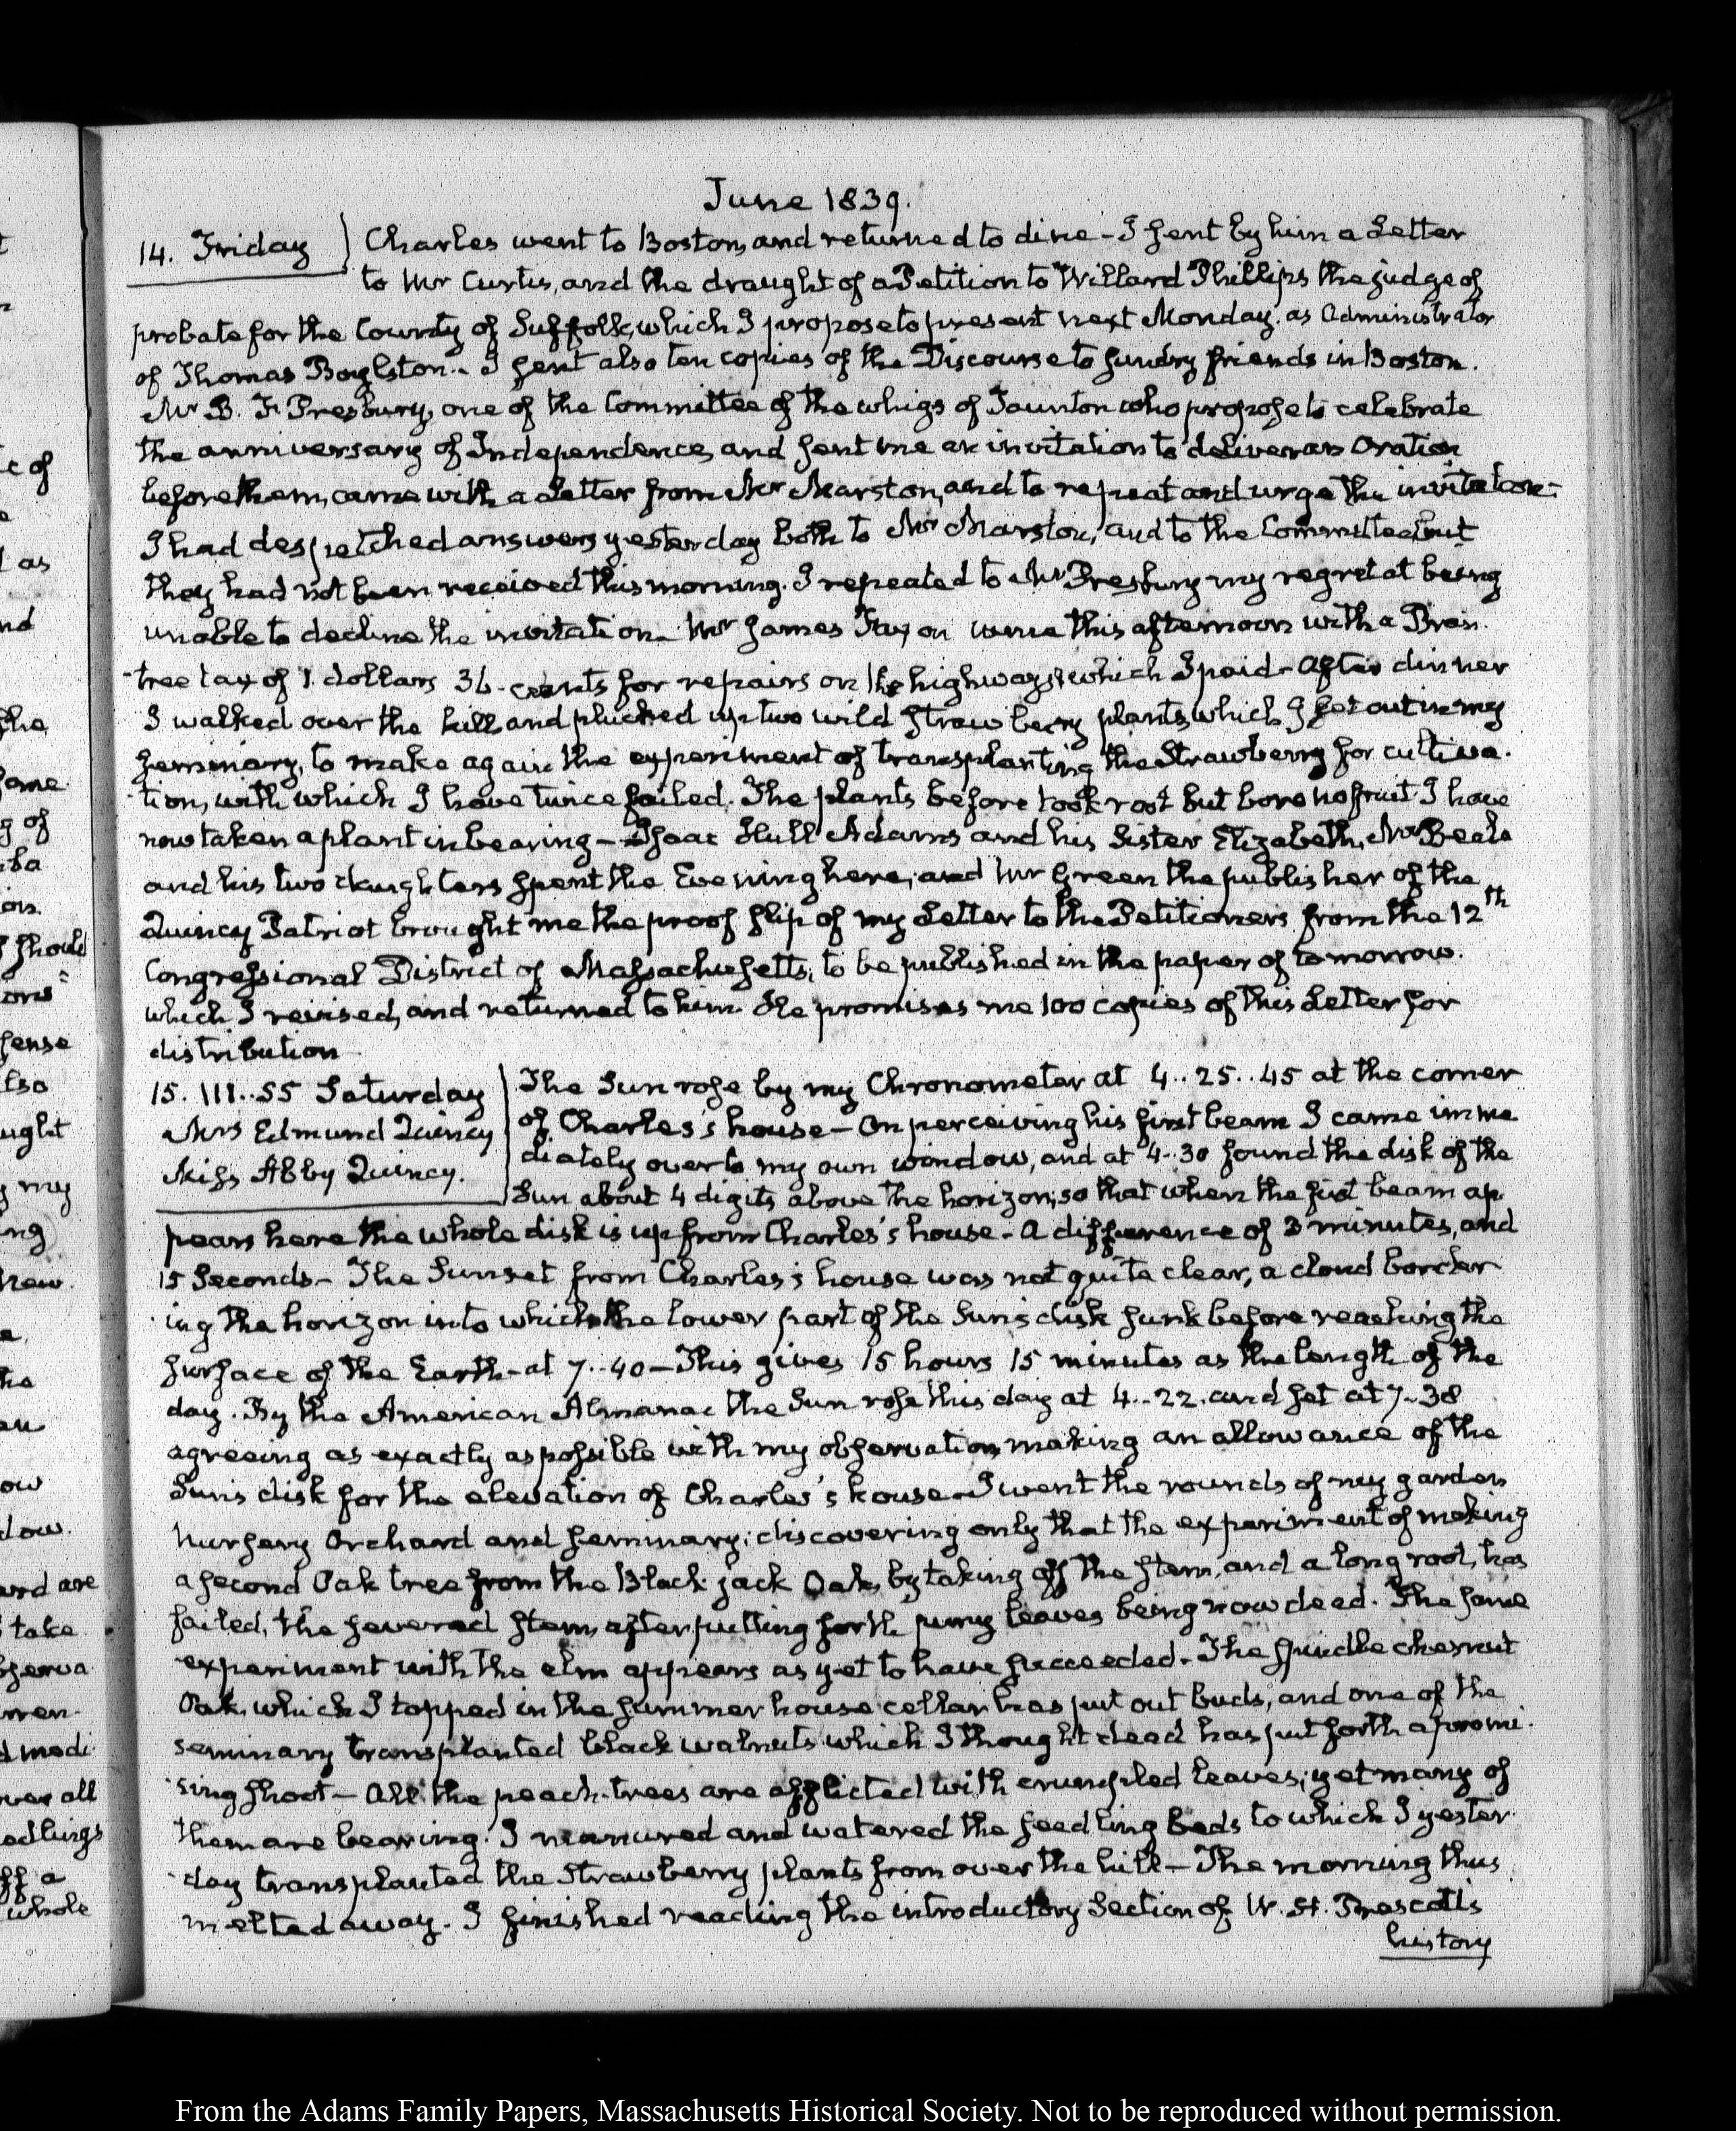 June 1839.
14. Friday
Charles went to Boston, and returned to dine - I sent by him a Letter
to Mr Curtis, and the draught of a Petition to Willard Phillips the judge of
probate for the County of Suffolk, which I propose to present next Monday. as Administrator
of Thomas Boylston. - I sent also ten copies of the Discourse to sundry friends in Boston.
Mr B. F. Presbury, one of the Committee of the whigs of Taunton who propose to celebrate
the anniversary of Independence, and sent me an invitation to deliver an Oration
before them, came with a Letter from Mr Marston, and to repeat and urge the invitation -
I had despatched answers yesterday both to Mr Marston, and to the Committee but
they had not been received this morning. I repeated to Mr Presbury my regret at being
unable to decline the invitation - Mr James Faxon came this afternoon with a Brain-
tree tax of 1 dollars 36 cents for repairs on the highways which I paid - After dinner
I walked over the hill and plucked up two wild strawberry plants, which I set out in my
seminary, to make again the experiment of transplanting the Strawberry for cultiva-
tion, with which I have twice failed. The plants before took root but bore no fruit. I have
now taken a plant in bearing - Isaac Hull Adams and his Sister Elizabeth, Mr Beale
and his two daughters spent the Evening here, and Mr Green the publisher of the
Quincy Patriot brought me the proof slip of my Letter to the Petitioners from the 12th
Congressional District of Massachusetts, to be published in the paper of tomorrow.
which I revised, and returned to him. He promises me 100 copies of this Letter for
distribution
15. III..55 Saturday
Mrs Edmund Quincy
Miss Abby Quincy.
The Sun rose by my Chronometer at 4..25..45 at the corner
of Charles's house - On perceiving his first beam I came imme
diately over to my own window, and at 4..30 found the disk of the
Sun about 4 digits above the horizon; so that when the first beam ap
pears here the whole disk is up from Charles's house - A difference of 3 minutes, and
15 Seconds - The Sunset from Charles's house was not quite clear, a cloud border
ing the horizon into which the lower part of the Sun's disk sunk before reaching the
surface of the Earth - at 7..40 - This gives 15 hours 15 minutes as the length of the
day. By the American Almanac the Sun rose this day at 4..22. and set at 7..38
agreeing as exactly as possible with my observation, making an allowance of the
Sun's disk for the elevation of Charles's house - I went the rounds of my garden
Nursery Orchard and seminary; discovering only that the experiment of making
a second Oak tree from the Black jack Oak, by taking off the stem, and a long root, has
failed, the severed stem, after putting forth puny leaves being now dead. The same
experiment with the elm appears as yet to have succeeded - The spindle chesnut
Oak, which I topped in the summer house cellar has put out buds, and one of the
seminary transplanted black walnuts which I thought dead has put forth a promi-
sing shoot - All the peach-trees are afflicted with crumpled leaves; yet many of
them are bearing. I manured and watered the seedling beds to which I yester-
day transplanted the Strawberry plants from over the hill - The morning thus
melted away. I finished reading the introductory Section of W. H. Prescott's
history
From the Adams Family Papers, Massachusetts Historical Society. Not to be reproduced without permission.